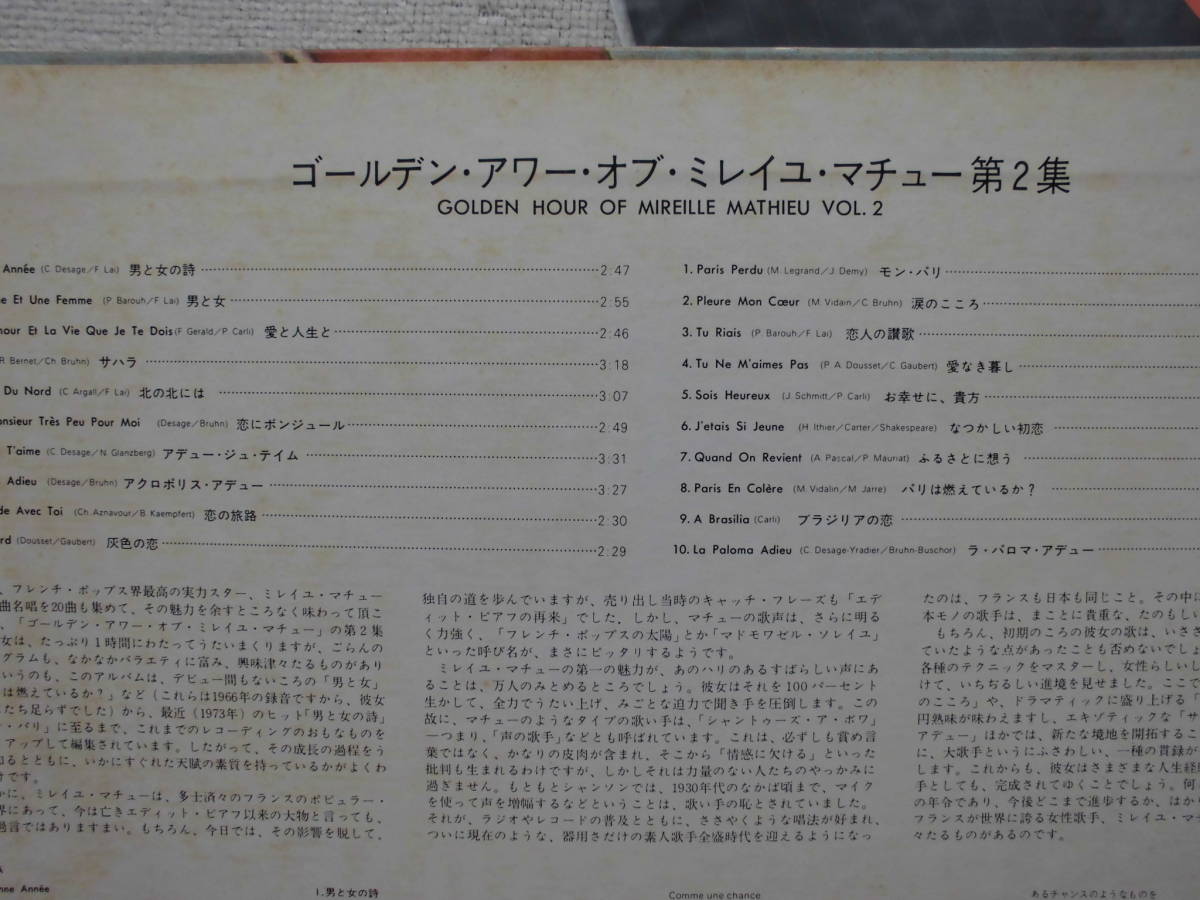 ゴールデン・アワー・オブ・ミレイユ・マチュー 第2集
GOLDEN HOUR OF MIREILLE MATHIEU VOL. 2
Année (C. Desage/F. Lai) 男と女の詩 2:47
e Et Une Femme (P. Barouh/F. Lai) 男と女 2:55
our Et La Vie Que Je Te Dois (F. Gerald/P. Carli) 愛と人生と 2:46
R. Bernet/Ch. Bruhn) サハラ 3:18
Du Nord (C. Argall/F. Lai) 北の北には 3:07
onsieur Très Peu Pour Moi (Desage/Bruhn) 恋にボンジュール 2:49
T'aime (C. Desage/N. Glanzberg) アデュー・ジュ・テイム 3:31
Adieu (Desage/Bruhn) アクロポリス・アデュー 3:27
de Avec Toi (Ch. Aznavour/B. Kaempfert) 恋の旅路 2:30
rd (Dousset/Gaubert) 灰色の恋 2:29
1. Paris Perdu (M. Legrand/J. Demy) モン・パリ
2. Pleure Mon Cœur (M. Vidain/C. Bruhn) 涙のこころ
3. Tu Riais (P. Barouh/F. Lai) 恋人の讃歌
4. Tu Ne M'aimes Pas (P. A. Dousset/C. Gaubert) 愛なき暮し
5. Sois Heureux (J. Schmitt/P. Carli) お幸せに、貴方
6. J'etais Si Jeune (H. Ithier/Carter/Shakespeare) なつかしい初恋
7. Quand On Revient (A. Pascal/P. Mauriat) ふるさとに想う
8. Paris En Colère (M. Vidalin/M. Jarre) パリは燃えているか?
9. A Brasilia (Carli) ブラジリアの恋
10. La Paloma Adieu (C. Desage-Yradier/Bruhn-Buschor) ラ・パロマ・アデュー
、フレンチ・ポップス界最高の実力スター、ミレイユ・マチュー
曲名唱を20曲も集めて、その魅力を余すところなく味わって頂こ
、「ゴールデン・アワー・オブ・ミレイユ・マチュー」の第2集
女は、たっぷり1時間にわたってうたいまくりますが、ごらんの
グラムも、なかなかバラエティに富み、興味津々たるものがあり
いうのも、このアルバムは、デビュー間もないころの「男と女」
は燃えているか?」など（これらは1966年の録音ですから、彼女
たち足らずでした）から、最近（1973年）のヒット「男と女の詩」
・パリ」に至るまで、これまでのレコーディングのおもなものを
アップして編集されています。したがって、その成長の過程をう
知るとともに、いかにすぐれた天賦の素質を持っているかがよくわ
けです。
かに、ミレイユ・マチューは、多士済々のフランスのポピュラー・
界にあって、今は亡きエディット・ピアフ以来の大物と言っても、
過言ではありますまい。もちろん、今日では、その影響を脱して、
独自の道を歩んでいますが、売り出し当時のキャッチ・フレーズも「エデ
ィット・ピアフの再来」でした。しかし、マチューの歌声は、さらに明る
く力強く、「フレンチ・ポップスの太陽」とか「マドモワゼル・ソレイユ」
といった呼び名が、まさにピッタリするようです。
ミレイユ・マチューの第一の魅力が、あのハリのあるすばらしい声にあ
ることは、万人のみとめるところでしょう。彼女はそれを100パーセント
生かして、全力でうたい上げ、みごとな迫力で聞き手を圧倒します。この
故に、マチューのようなタイプの歌い手は、「シャントゥーズ・ア・ボワ」
―つまり、「声の歌手」などとも呼ばれています。これは、必ずしも賞め言
葉ではなく、かなりの皮肉が含まれ、そこから「情感に欠ける」といった
批判も生まれるわけですが、しかしそれは力量のない人たちのやっかみに
過ぎません。もともとシャンソンでは、1930年代のなかば頃まで、マイク
を使って声を増幅するなどということは、歌い手の恥とされていました。
それが、ラジオやレコードの普及とともに、ささやくような唱法が好まれ、
ついに現在のような、器用さだけの素人歌手全盛時代を迎えるようになっ
たのは、フランスも日本も同じこと。その中に
本モノの歌手は、まことに貴重な、たのもしい
もちろん、初期のころの彼女の歌は、いささ
ていたような点があったことも否めないでしょ
各種のテクニックをマスターし、女性らしいし
けて、いちぢるしい進境を見せました。ここで
のこころ」や、ドラマティックに盛り上げる「
円熟味が味わえますし、エキゾティックな「サ
アデュー」ほかでは、新たな境地を開拓するこ
に、大歌手というにふさわしい、一種の貫録が
します。これからも、彼女はさまざまな人生経
手としても、完成されてゆくことでしょう。何
の年令であり、今後どこまで進歩するか、はか
フランスが世界に誇る女性歌手、ミレイユ・マチ
々たるものがあるのです。
nne Année
1. 男と女の詩
Comme une chance
あるチャンスのようなものを